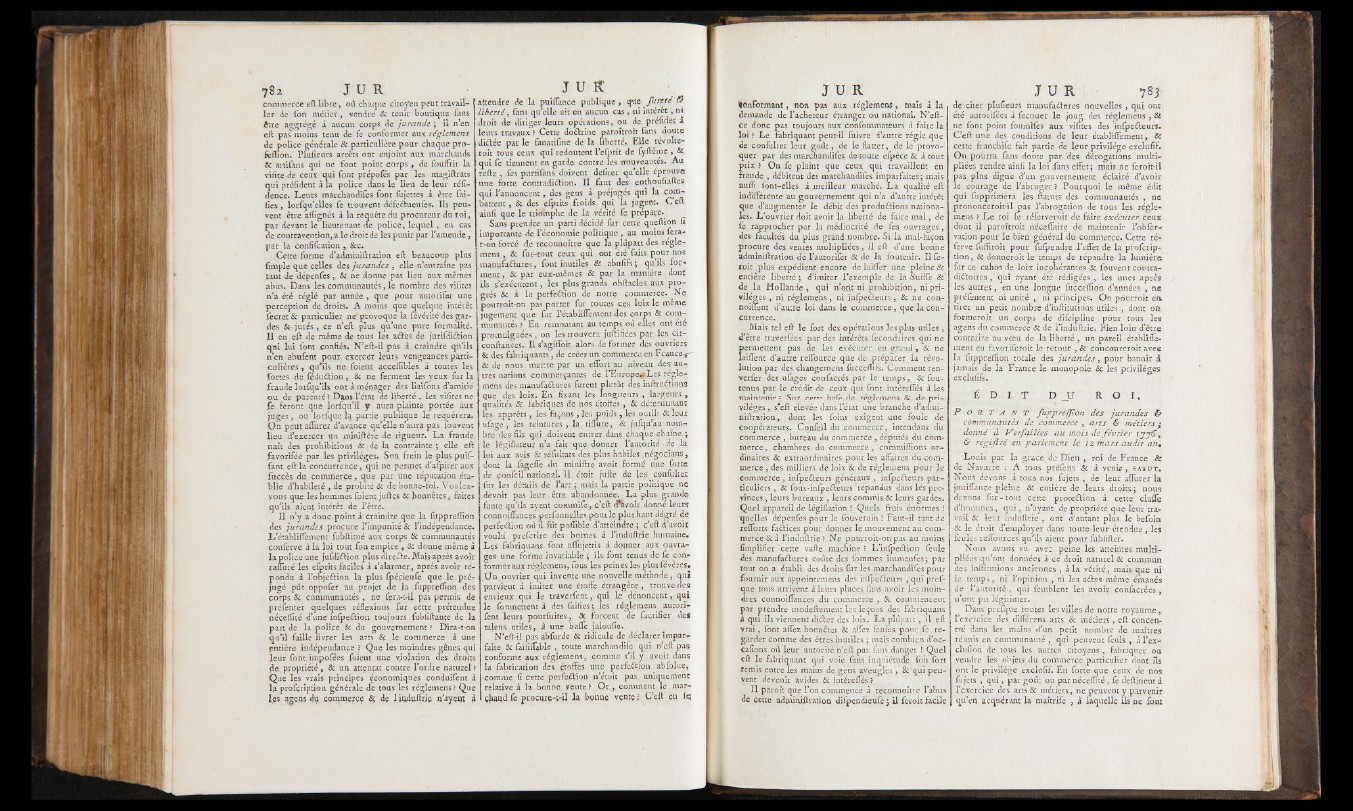 782 JUR
commerce eſt libre, où chaque citoyen peut travail-
ler de ſon métier, vendre & tenir boutique ſans
être aggrégé à aucun corps de jurande ; il n'en
eſt pas moins tenu de ſe conformer aux réglemens
de police générale & particulière pour chaque pro-
feſſion. Pluſieurs arrêts ont enjoint aux marchands
& artiſans qui ne ſont point corps, de ſouffrir la
viſite de ceux qui ſont prépoſés par les magiſtrats
qui préſident à la police dans le lieu de leur réſi-
dence. Leurs marchandiſes ſont ſujettes à être ſai-
ſies, lorſqu'elles ſe trouvent défectueuſes. Ils peu-
vent être aſſignés à la requête du procureur du roi,
par devant le lieutenant de police, lequel, en cas
de contravention, a le droit de les punir par l'amende,
par la confiſcation, &c.
Cette forme d'adminiſtration eſt beaucoup plus
ſimple que celles des jurandes, elle n'entraîne pas
tant de dépenſes, & ne donne pas lieu aux mêmes
abus. Dans les communautés, le nombre des viſites
n'a été réglé par année, que pour autoriſer une
perception de droits. A moins que quelque intérêt
ſecret & particulier ne provoque la ſévérité des gar-
des & jurés, ce n'eſt plus qu'une pure formalité.
Il en eſt de même de tous les actes de juriſdiction
qui lui ſont confiés. N'eſt-il pas à craindre qu'ils
n'en abuſent pour exercer leurs vengeances parti-
culières, qu'ils ne ſoient acceſſibles à toutes les
ſortes de ſéduction, & ne ferment les yeux ſur la
fraude lorſqu'ils ont à ménager des liaiſons d'amitié
ou de parenté ? Dans l'état de liberté, les viſites ne
ſe feront que lorſqu'il y aura plainte portée aux
juges, ou lorſque la partie publique le requérera.
On peut aſſurer d'avance qu'elle n'aura pas ſouvent
lieu d'exercer un miniſtère de rigueur. La fraude
naît des prohibitions & de la contrainte ; elle eſt
favoriſée par les privilèges. Son frein le plus puiſ-
ſant eſt la concurrence, qui ne permet d'aſpirer aux
ſuccès du commerce, que par une réputation éta-
blie d'habileté, de probité & de bonne-foi. Voulez-
vous que les hommes ſoient juſtes & honnêtes, faites
qu'ils aient intérêt de l'être.
Il n'y a donc point à craindre que la ſuppreſſion
des jurandes procure l'impunité & l'indépendance.
L'établiſſement ſubſtitué aux corps & communautés
conſerve à la loi tout ſon empire, & donne même à
la police une juſdiction plus directe. Mais après avoir
raſſuré les eſprits faciles à s'alarmer, après avoir ré-
pondu à l'objection la plus ſpécieuſe que le pré-
jugé pût oppoſer au projet de la ſuppreſſion des
corps & communautés, ne ſera-t-il pas permis de
préſenter quelques réflexions ſur cette prétendue
néceſſité d'une inſpection toujours ſubſiſtante de la
part de la police & du gouvernement ? Dira-t-on
qu'il faille livrer les arts & le commerce à une
entière indépendance ? Que les moindres gênes qui
leur ſont impoſées ſoient une violation des droits
de propriété, & un attentat contre l'ordre naturel ?
Que les vrais principes économiques conduiſent à
la proſcription générale de tous les réglemens ? Que
les agens du commerce & de l'induſtrie n'ayent à
JUR
attendre de la puiſſance publique, que ſureté &
liberté, ſans qu'elle ait en aucun cas, ni intérêt, ni
droit de diriger leurs opérations, ou de préſider à
leurs travaux ? Cette doctrine paroîtroit ſans doute
dictée par le fanatiſme de la liberté. Elle révolte-
roit tous ceux qui redoutent l'eſprit de ſyſtême, &
qui ſe tiennent en garde contre les nouveautés. Au
reſte, ſes partiſans doivent deſirer qu'elle éprouve
une forte contradiction. Il faut des enthouſiaſtes
qui l'annoncent, des gens à préjugés qui la com-
battent, & des eſprits froids qui la jugent. C'eſt
ainſi que le triomphe de la vérité ſe prépare.
Sans prendre un parti décidé ſur cette queſtion ſi
importante de l'économie politique, au moins ſera-
t-on forcé de reconnoître que la plûpart des régle-
mens, & ſur-tout ceux qui ont été faits pour nos
manufactures, ſont inutiles & abuſifs ; qu'ils for-
ment, & par eux-mêmes & par la manière dont
ils s'exécutent, les plus grands obſtacles aux pro-
grès & à la perfection de notre commerce. Ne
pourroit-on pas porter ſur toutes ces loix le même
jugement que ſur l'établiſſement des corps & com-
munautés ? En remontant au temps où elles ont été
promulguées, on les trouvera juſtifiées par les cir-
conſtances. Il s'agiſſoit alors de former des ouvriers
& des fabriquants, de créer un commerce en France,
& de nous mettre par un effort au niveau des au-
tres nations commerçantes de l'Europe. Les régle-
mens des manufactures furent plutôt des inſtructions
que des loix. En fixant les longueurs, largeurs,
qualités & fabriques de nos étoffes, & déterminant
les apprêts, les façons, les poids, les outils & leur
uſage, les teintures, la tiſſure, & juſqu'au nom-
bre des fils qui doivent entrer dans chaque chaîne ;
le légiſlateur n'a fait que donner l'autorité de la
loi aux avis & réſultats des plus habiles négocians,
dont la ſageſſe du miniſtre avoit formé une ſorte
de conſeil national. Il étoit juſte de les conſulter
ſur les détails de l'art ; mais la partie politique ne
devoit pas leur être abandonnée. La plus grande
faute qu'ils ayent commiſe, c'eſt d'avoir donné leurs
connoiſſances perſonnelles pour le plus haut dégré de
perfection où il fût poſſible d'atteindre ; c'eſt d'avoir
voulu preſcrire des bornes à l'induſtrie humaine.
Les fabriquans ſont aſſujettis à donner aux ouvra-
ges une forme invariable ; ils ſont tenus de ſe con-
former aux réglemens, ſous les peines les plus ſévères.
Un ouvrier qui invente une nouvelle méthode, qui
parvient à imiter une étoffe étrangère, trouve des
envieux qui le traverſent, qui le dénoncent, qui
le ſoumettent à des ſaiſies ; les réglemens autori-
ſent leurs pourſuites, & forcent de ſacrifier des
talens utiles, à une baſſe jalouſie.
N'eſt-il pas abſurde & ridicule de déclarer impar-
faite & ſaiſiſſable, toute marchandiſe qui n'eſt pas
conforme aux réglemens, comme s'il y avoit dans
la fabrication des étoffes une perfection abſolue,
comme ſi cette perfection n'étoit pas uniquement
relative à la bonne vente ? Or, comment le mar-
chand ſe procure-t-il la bonne vente ? C'eſt en ſe
JUR
conformant, non pas aux réglemens, mais à la
demande de l'acheteur étranger ou national. N'eſt-
ce donc pas toujours aux conſommateurs à faire la
loi ? Le fabriquant peut-il ſuivre d'autre régle que
de conſulter leur goût, de le flatter, de le provo-
quer par des marchandiſes de toute eſpèce & à tout
prix ? On ſe plaint que ceux qui travaillent en
fraude, débitent des marchandiſes imparfaites ; mais
auſſi ſont-elles à meilleur marché. La qualité eſt
indifférente au gouvernement qui n'a d'autre intérêt
que d'augmenter le débit des productions nationa-
les. L'ouvrier doit avoir la liberté de faire mal, de
ſe rapprocher par la médiocrité de ſes ouvrages,
des facultés du plus grand nombre. Si la mal-façon
procure des ventes multipliées, il eſt d'une bonne
adminiſtration de l'autoriſer & de la ſoutenir. Il ſe-
roit plus expédient encore de laiſſer une pleine &
entière liberté ; d'imiter l'exemple de la Suiſſe &
de la Hollande, qui n'ont ni prohibition, ni pri-
vilèges, ni réglemens, ni inſpecteurs, & ne con-
noiſſent d'autre loi dans le commerce, que la con-
currence.
Mais tel eſt le ſort des opérations les plus utiles,
d'être traverſées par des intérêts ſecondaires qui ne
permettent pas de les exécuter en grand, & ne
laiſſent d'autre reſſource que de préparer la révo-
lution par des changemens ſucceſſifs. Comment ren-
verſer des uſages conſacrés par le temps, & ſou-
tenus par le crédit de ceux qui ſont intéreſſés à les
maintenir ? Sur cette baſe de réglemens & de pri-
vilèges, s'eſt élevée dans l'état une branche d'admi-
niſtration, dont les ſoins exigent une foule de
coopérateurs. Conſeil du commerce, intendans du
commerce, bureau du commerce, députés du com-
merce, chambres du commerce, commiſſions or-
dinaires & extraordinaires pour les affaires du com-
merce, des milliers de loix & de réglemens pour le
commerce, inſpecteurs généraux, inſpecteurs par-
ticuliers, & ſous-inſpecteurs répandus dans les pro-
vinces, leurs bureaux, leurs commis & leurs gardes.
Quel appareil de légiſlation ! Quels frais énormes !
quelles dépenſes pour le ſouverain ! Faut-il tant de
reſſorts factices pour donner le mouvement au com-
merce & à l'induſtrie ? Ne pourroit-on pas au moins
ſimplifier cette vaſte machine ? L'inſpection ſeule
des manufactures coûte des ſommes immenſes ; par
tout on a établi des droits ſur les marchandiſes pour
fournir aux appointemens des inſpecteurs, qui preſ-
que tous arrivent à leurs places ſans avoir les moin-
dres connoiſſances du commerce, & commencent
par prendre modeſtement les leçons des fabriquans
à qui ils viennent dicter des loix. La plûpart, il eſt
vrai, ſont aſſez honnêtes & aſſez ſenſés pour ſe re-
garder comme des êtres inutiles ; mais combien d'oc-
caſions où leur autorité n'eſt pas ſans danger ! Quel
eſt le fabriquant qui voie ſans inquiétude ſon ſort
remis entre les mains de gens aveugles, & qui peu-
vent devenir avides & intéreſſés ?
Il paroît que l'on commence à reconnoître l'abus
de cette adminiſtration diſpendieuſe ; il ſeroit facile
JUR 783
de citer pluſieurs manufactures nouvelles, qui ont
été autoriſées à ſecouer le joug des réglemens, &
ne ſont point ſoumiſes aux viſites des inſpecteurs.
C'eſt une des conditions de leur établiſſement, &
cette franchiſe fait partie de leur privilège excluſif.
On pourra ſans doute par des dérogations multi-
pliées rendre ainſi la loi ſans effet ; mais ne ſeroit-il
pas plus digne d'un gouvernement éclairé d'avoir
le courage de l'abroger ? Pourquoi le même édit
qui ſupprimera les ſtatuts des communautés, ne
prononceroit-il pas l'abrogation de tous les régle-
mens ? Le roi ſe réſerveroit de faire exécuter ceux
dont il paroîtroit néceſſaire de maintenir l'obſer-
vation pour le bien général du commerce. Cette ré-
ſerve ſuffiroit pour ſuſpendre l'effet de la proſcrip-
tion, & donneroit le temps de répandre la lumière
ſur ce cahos de loix incohérantes & ſouvent contra-
dictoires, qui ayant été rédigées, les unes après
les autres, en une longue ſucceſſion d'années, ne
préſentent ni unité, ni principes. On pourroit en
tirer un petit nombre d'inſtitutions utiles, dont on
formeroit un corps de diſcipline pour tous les
agens du commerce & de l'induſtrie. Bien loin d'être
contraire au vœu de la liberté, un pareil établiſſe-
ment en favoriſeroit le retour, & concourreroit avec
la ſuppreſſion totale des jurandes, pour bannir à
jamais de la France le monopole & les privilèges
excluſifs.
ÉDIT DU ROI,
PORTANT ſuppreſſion des jurandes &
communautés de commerce, arts & métiers ;
donné à Verſailles au mois de février 1776,
& regiſtré en parlement le 12 mars audit an.
Louis par la grace de Dieu, roi de France &
de Navarre : A tous préſens & à venir, SALUT.
Nous devons à tous nos ſujets, de leur aſſurer la
jouiſſance pleine & entière de leurs droits ; nous
devons ſur-tout cette protection à cette claſſe
d'hommes, qui, n'ayant de propriété que leur tra-
vail & leur induſtrie, ont d'autant plus le beſoin
& le droit d'employer dans toute leur étendue, les
ſeules reſſources qu'ils aient pour ſubſiſter.
Nous avons vu avec peine les atteintes multi-
pliées qu'ont données à ce droit naturel & commun
des inſtitutions anciennes, à la vérité, mais que ni
le temps, ni l'opinion, ni les actes même émanés
de l'autorité, qui ſemblent les avoir conſacrées,
n'ont pu légitimer.
Dans preſque toutes les villes de notre royaume,
l'exercice des différens arts & métiers, eſt concen-
tré dans les mains d'un petit nombre de maîtres
réunis en communauté, qui peuvent ſeuls, à l'ex-
cluſion de tous les autres citoyens, fabriquer ou
vendre les objets du commerce particulier dont ils
ont le privilège excluſif. En ſorte que ceux de nos
ſujets, qui, par goût ou par néceſſité, ſe deſtinent à
l'exercice des arts & métiers, ne peuvent y parvenir
qu'en acquérant la maîtriſe, à laquelle ils ne ſont